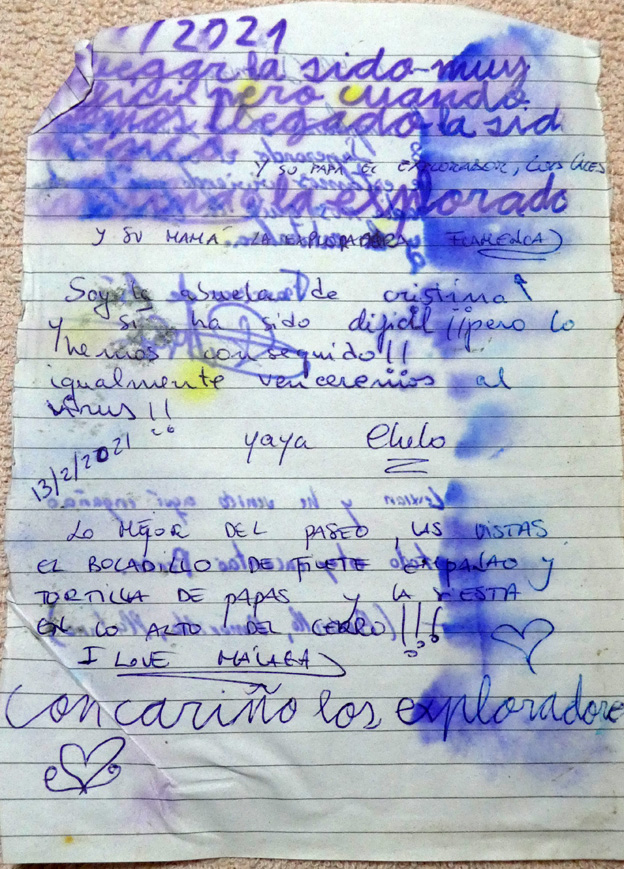 /2021
llegar ha sido muy
dificil pero cuando
hemos llegado ha sid
Y SU PAPÁ EL EXPLORADOR, LUIS
la explorado
Y SU MAMÁ LA EXPLORADORA FLAMENCA
Soy la abuela de cristina
y si ha sido dificil ¡¡pero lo
hemos conseguido!!
igualmente venceremos al
virus!!
yaya Chelo
13/2/2021
LO MEJOR DEL PASEO, LAS VISTAS
EL BOCADILLO DE FILETE EMPANAO Y
TORTILLA DE PAPAS Y LA SIESTA
EN LO ALTO DEL CERRO!!!
I LOVE MÁLAGA
Con cariño los exploradore